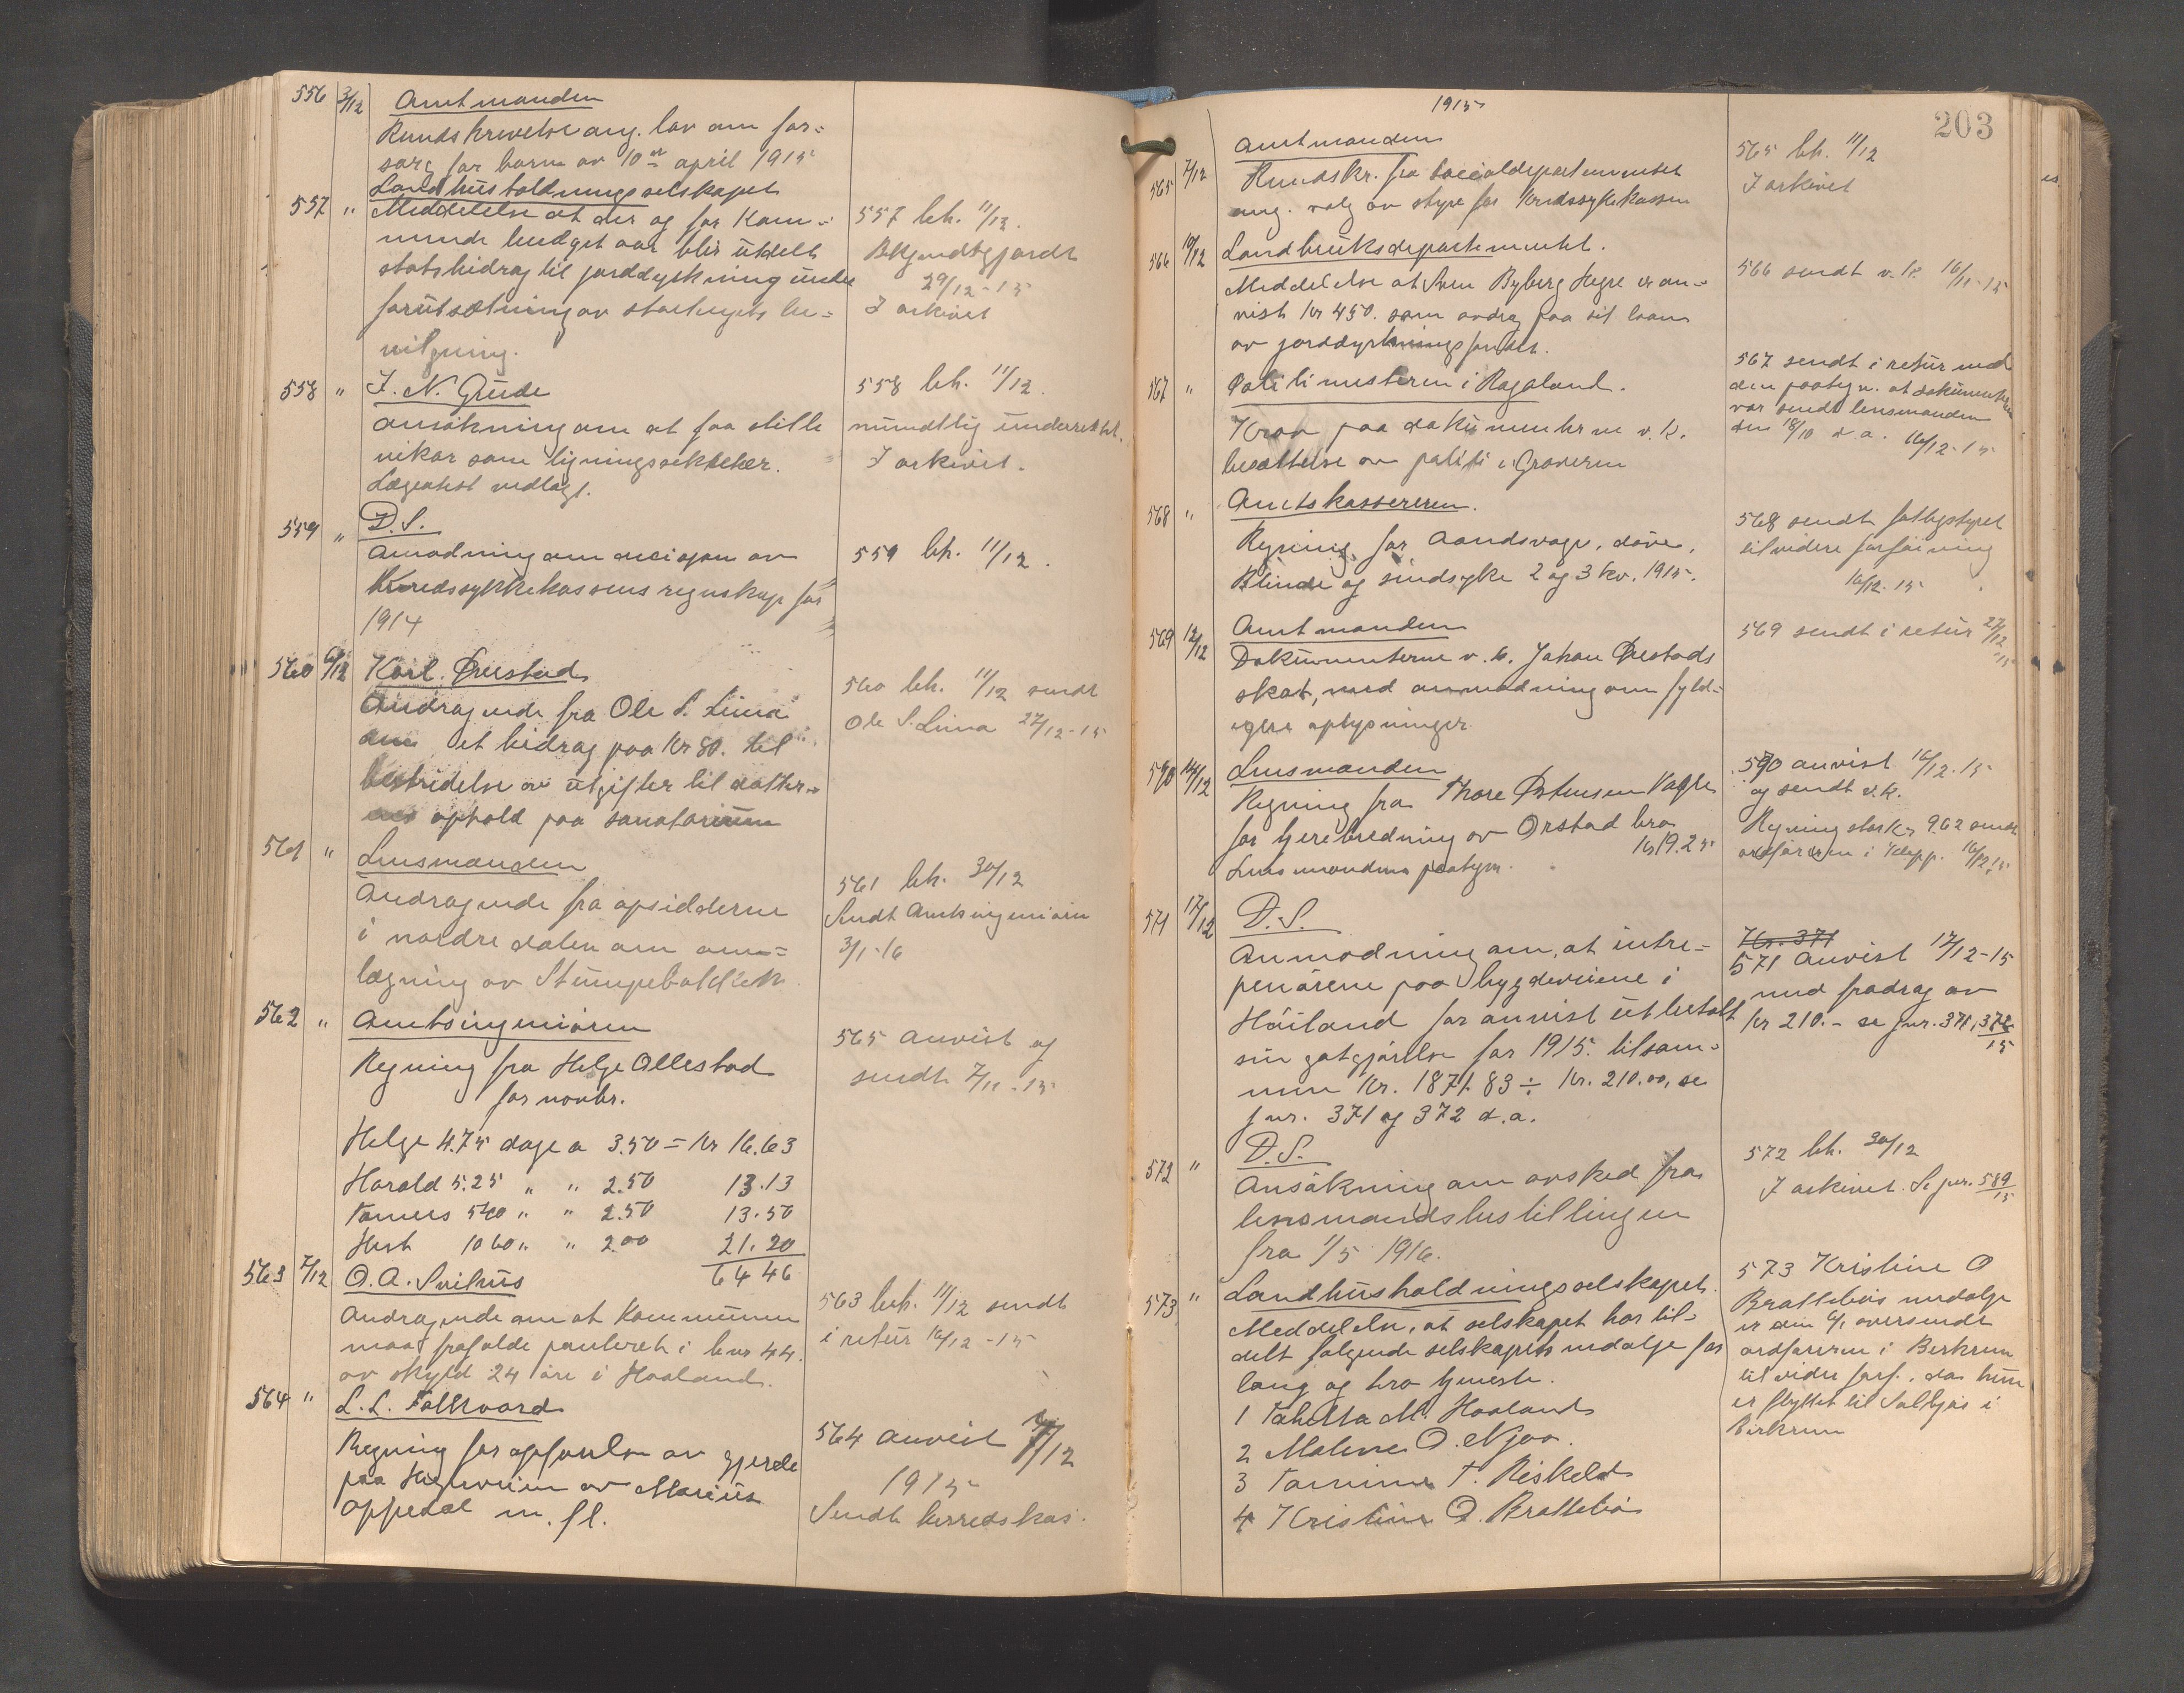 556 3/12 Amtmanden
Rundskrivelse ang. lov om for-
sorg for barn av 10de april 1915
Landhusholdningsselskapet
557 " Meddelelse at der og for kom-
mende budgetaar blir utdelt
statsbidrag til jorddyrkning under
forutsætning av stortingets be-
vilgning.
557 bh. 11/12.
Bekjendtgjordt
29/12-15
I arkivet
558 " J. N. Grude
Ansökning om at faa stille
vikar som ligningssekretær.
Lægeatest vedlagt.
558 bh. 11/12.
mundtlig underrettet.
I arkivet.
559 " D.S.
Anmodning om decisjon av
kredssykekassens regnskap for
1914
559 bh. 11/12.
560 6/12 Karl Örestad
Andragende fra Ole S. Lima
om et bidrag paa Kr 80. til
bestridelse av utgifter til datter-
ens ophold paa sanatorium
560 bh. 11/12 sendt
Ole S. Lima 27/12-15
561 " Lensmanden
Andragende fra opsidderne
i nordre dalen om om-
lægning av Stumpebakken.
561 bh. 30/12
Sendt Amtsingeniören
3/1-16
562 " Amtsingeniören
Regning fra Helge Ollestad
for novbr.
565 anvist og
sendt 7/12-15
Helge 4.75 dage a 3.50 = Kr 16.63
Harald 5.25 " " 2.50 13.13
Tönnes 540 " " 2.50 13.50
Hest 1060 " " 2.00 21.20
6446
563 7/12 O. A. Svihus
Andragende om at Kommunen
maa frafalde panteret i bnr 44.
av skyld 24 öre i Haaland.
563 beh. 11/12 sendt
i retur 16/12-15
564 " L. L. Folkvord
Regning for opförelse av gjerde
paa Höleveien av Marius
Oppedal m. fl.
564 anvist 7/12
1915
Sendt herredskas.
1915
203
Amtmanden
565 7/12 Rundskr. fra socialdepartementet
ang. valg av styre for kredssykekassen
565 bh. 11/12
I arkivet
566 10/12 Landbruksdepartementet.
Meddelelse at Sven Byberg Hogre er an-
vist Kr 450. som avdrag paa sit laan
av jorddyrkningsfondet.
566 sendt v. k. 16/12-15
567 " Politimesteren i Rogaland.
Krav paa dokumenterne v. k.
besættelse av politi i Graveren
567 sendt i retur med
den paategn. at dokumenterne
var sendt lensmanden
den 18/10 d. a. 16/12-15
568 " Amtskassereren.
Regning for Aandsvage, döve,
Blinde og sindsyke 2 og 3 kv. 1915.
568 sendt fattigstyret
til videre forföining
16/12-15
569 12/12 Amtmanden
Dokumenterne v. k. Johan Örestads
skat, med anmodning om fyld-
igere oplysninger
569 sendt i retur 27/12
15
570 14/12 Lensmanden
Regning fra Thore Östensen Vagle
for hjerebredning av Orstad bro
Kr 19.25
Lensmandens paategn.
570 anvist 16/12-15
og sendt v. k.
Regning stor Kr 9.62 sendt
ordföreren i Klepp. 16/12 15
571 17/12 D.S.
Anmodning om, at intre-
penörene paa bygdeveiene i
Höiland faar anvist utbetalt
sin godtgjörelse for 1915. tilsam-
men Kr. 1871.83 ÷ Kr. 210.00, se
jnr. 371 og 372 d.a.
Kr. 371
571 Anvist 17/12-15
med fradrag av
Kr 210.- se jnr. 371, 372
15
572 " D.S.
Ansökning om avsked fra
lensmandsbestillingen
fra 1/5 1916.
572 bh. 30/12
I arkivet. Se jnr. 589
15
573 " Landhusholdningsselskapet.
Meddelelse, at selskapet har til-
delt følgende selskapets medalje for
lang og tro tjeneste.
1 Tabitta M. Haaland
2 Malene O. Njaa.
3 Tomine T. Riskeld
4 Kristine O. Bratteböe
573 Kristine O
Bratteböes medalje
er den 6/1 oversendt
ordföreren i Bjerkrem
til videre forf., da hun
er flyttet til Solbjör i
Birkrem